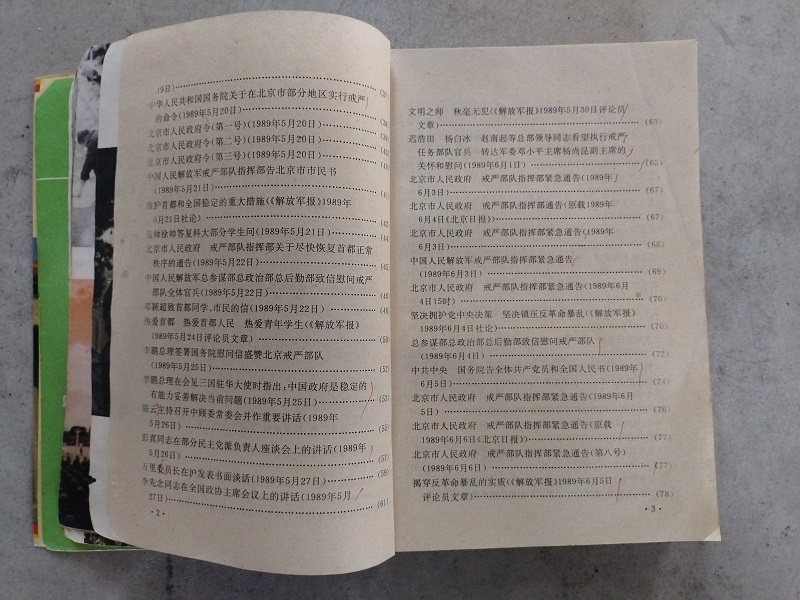 19日)
中华人民共和国国务院关于在北京市部分地区实行戒严
的命令(1989年5月20日)
北京市人民政府令(第一号)(1989年5月20日)
北京市人民政府令(第二号)(1989年5月20日)
北京市人民政府令(第三号)(1989年5月20日)
中国人民解放军戒严部队指挥部告北京市市民书
(1989年5月21日)
维护首都和全国稳定的重大措施(《解放军报》1989年
5月21日社论)
聂帅徐帅答复科大部分学生问(1989年5月21日)
北京市人民政府 戒严部队指挥部关于尽快恢复首都正常
秩序的通告(1989年5月22日)
中国人民解放军总参谋部总政治部总后勤部致信慰问戒严
部队全体官兵(1989年5月22日)
邓颖超致首都同学、市民的信(1989年5月22日)
热爱首都 热爱首都人民 热爱青年学生(《解放军报》
1989年5月24日评论员文章)
李鹏总理签署国务院慰问信盛赞北京戒严部队
(1989年5月25日)
李鹏总理在会见三国驻华大使时指出:中国政府是稳定的
有能力妥善解决当前问题(1989年5月25日)
陈云主持召开中顾委常委会并作重要讲话(1989年
5月26日)
彭真同志在部分民主党派负责人座谈会上的讲话(1989年
5月26日) (57)
万里委员长在沪发表书面谈话(1989年5月27日) (59)
李先念同志在全国政协主席会议上的讲话(1989年5月
27日) (61)
·2·
文明之师 秋毫无犯(《解放军报》1989年5月30日评论员
文章) (63)
迟浩田 杨白冰 赵南起等总部领导同志看望执行戒严
任务部队官兵 转达军委邓小平主席杨尚昆副主席的
关怀和慰问(1989年6月1日) (65)
北京市人民政府 戒严部队指挥部紧急通告(1989年
6月3日) (67)
北京市人民政府 戒严部队指挥部通告(原载1989年
6月4日《北京日报》) (67)
北京市人民政府 戒严部队指挥部紧急通告(1989年
6月3日) (68)
中国人民解放军戒严部队指挥部紧急通告
(1989年6月3日) (69)
北京市人民政府 戒严部队指挥部紧急通告(1989年6月
4日15时) (70)
坚决拥护党中央决策 坚决镇压反革命暴乱(《解放军报》
1989年6月4日社论)
总参谋部总政治部总后勤部致信慰问戒严部队
(1989年6月4日) (72)
中共中央 国务院告全体共产党员和全国人民书(1989年
6月5日) (74)
北京市人民政府 戒严部队指挥部紧急通告(1989年6月
5日) (76)
北京市人民政府 戒严部队指挥部紧急通告(原载
1989年6月6日《北京日报》) (77)
北京市人民政府 戒严部队指挥部紧急通告(第八号)
(1989年6月6日) (77)
揭穿反革命暴乱的实质(《解放军报》1989年6月5日
评论员文章) (78)
·3·